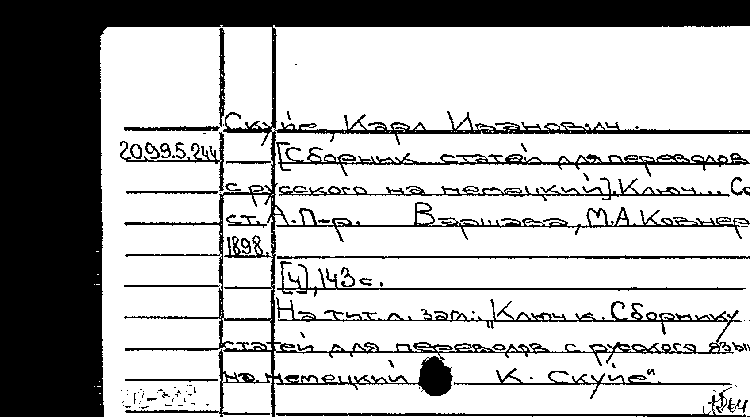 Скуйе, Карл Иванович.
20.99.5.244 [Сборник статей для переводов
с русского на немецкий]. Ключ... Со
ст. А. П-р. Варшава, М.А. Ковнер
1898.
[4], 143 с.
На тит. л. заг.: „Ключ к Сборнику
статей для переводов с русского язы
на немецкий К. Скуйе".